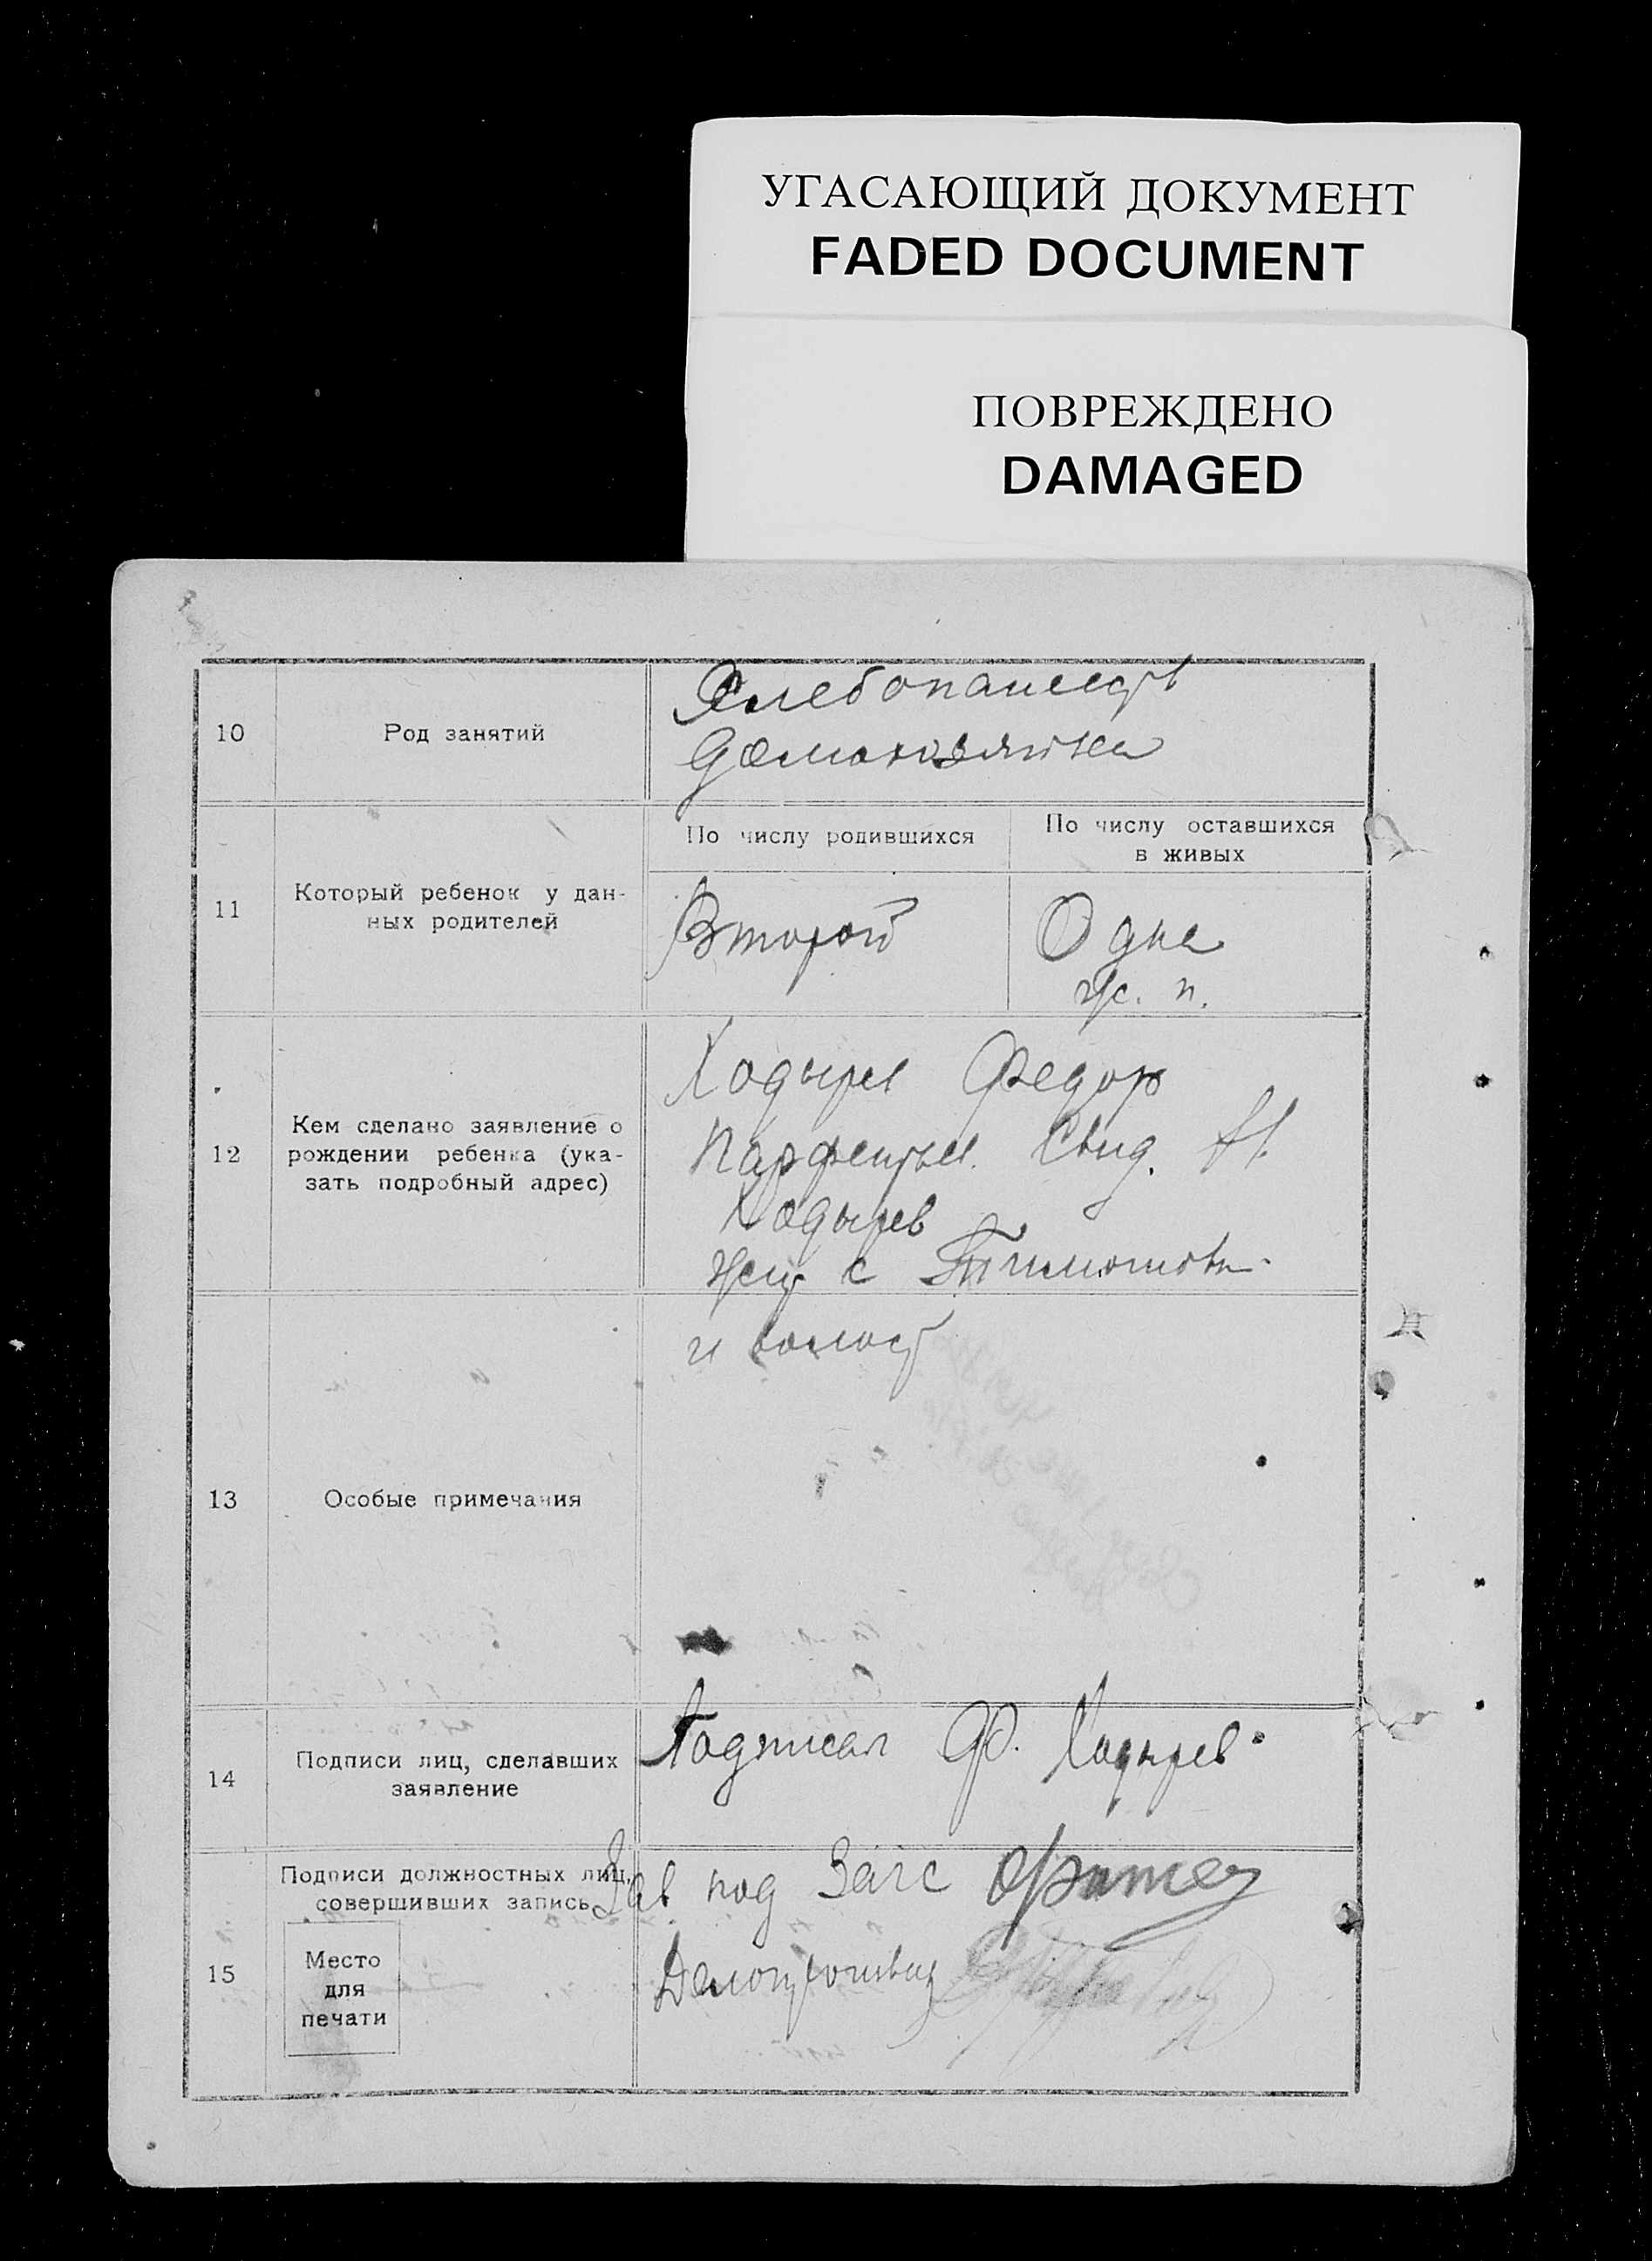 УГАСАЮЩИЙ ДОКУМЕНТ
FADED DOCUMENT
ПОВРЕЖДЕНО
DAMAGED
10
Род занятий
Хлебопашеств
домохозяйка
11
Который ребенок у дан-
ных родителей
По числу родившихся
Второй
По числу оставшихся
в живых
Одна
ж. п.
12
Кем сделано заявление о
рождении ребенка (ука-
зать подробный адрес)
Ходырев Федор
Парфентьев. Свид.
Ходырев
жит с
и волост
13
Особые примечания
14
Подписи лиц, сделавших
заявление
Подписал Ф. Ходырев
15
Подписи должностных лиц,
совершивших запись
Место
для
печати
Зав под Загс
Делопроизвод